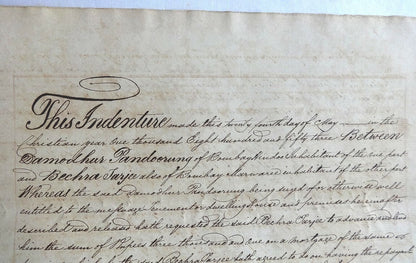 This Indenture made this twenty fourth day of May in the
Christian year One thousand Eight hundred and fifty three Between
Damodhur Pandoorung of Bombay Hindoo Inhabitant of the one part
and Bechra Tarjee also of Bombay Marwaree inhabt of the other part
Whereas the said Damodhur Pandoorung being seized for otherwise well
entitled to the messuage Tenement or dwelling House and premises hereinafter
described and released hath requested the said Bechra Tarjee to advance and lend
him the sum of Rupees three thousand and one on a mortgage of the same
the said Bechra Tarjee hath agreed to do on having the repayment